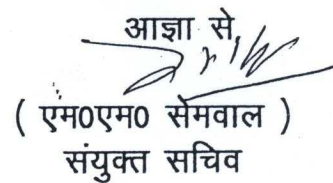 आज्ञा से,
( एम0एम0 सेमवाल )
संयुक्त सचिव